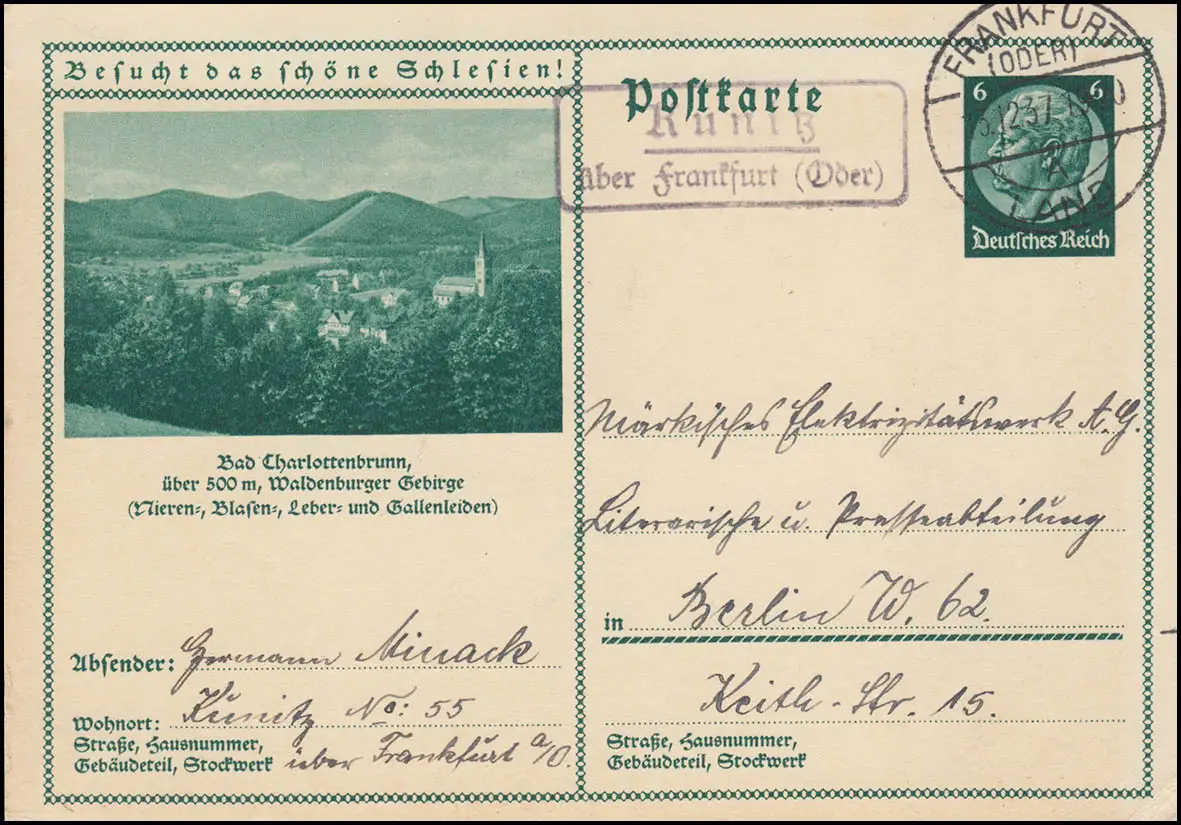 Besucht das schöne Schlesien!
Bad Charlottenbrunn,
über 500 m, Waldenburger Gebirge
(Nieren-, Blasen-, Leber- und Gallenleiden)
Absender: Hermann Minack
Wohnort: Kunitz No: 55
Straße, Hausnummer,
Gebäudeteil, Stockwerk
über Frankfurt a/O.
Postkarte
Kunitz
über Frankfurt (Oder)
FRANKFURT
(ODER)
12.37
a
LAND
6 6
Deutsches Reich
Märkisches Elektrizitätswerk A. G.
Literarische u. Presseabteilung
in Berlin W. 62.
Keith-Str. 15.
Straße, Hausnummer,
Gebäudeteil, Stockwerk